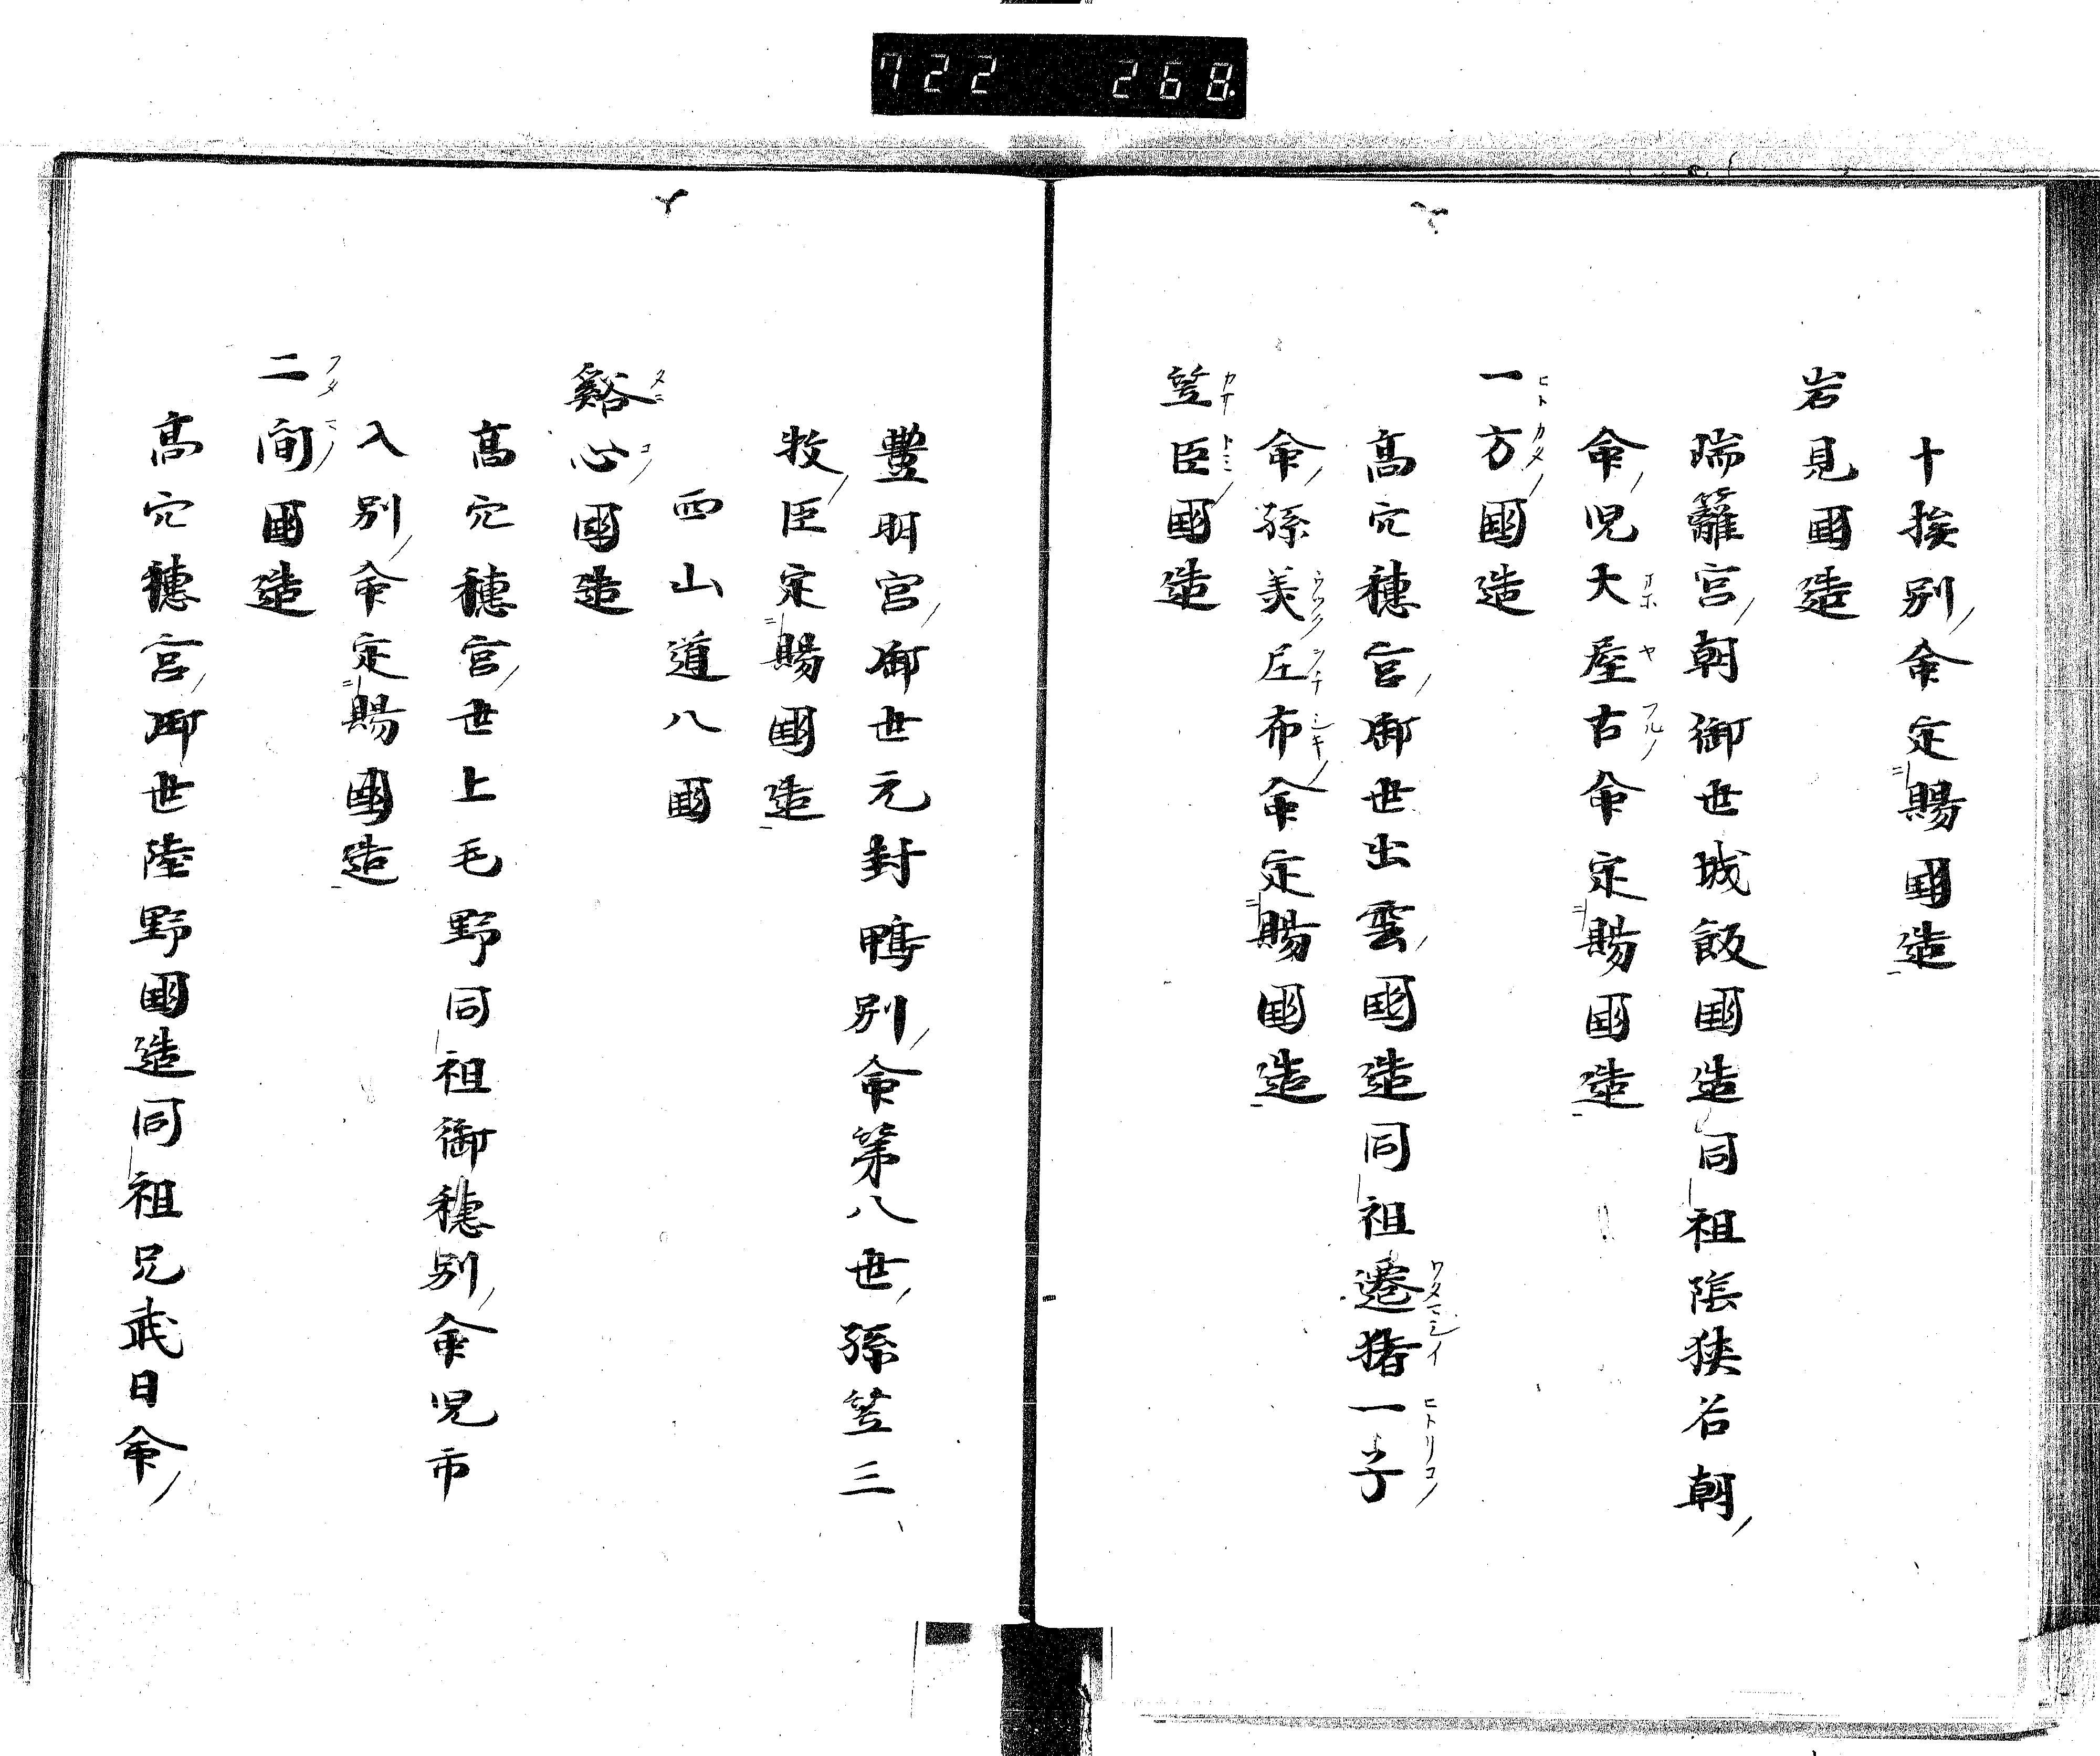 722 268
十挨別命定賜國造
岩見國造
瑞籬宮朝御世城飯國造同祖陰狭谷朝
命児大屋古命定賜國造
一方國造
高穴穂宮御世出雲國造同祖遷猪一子
命孫美庄布命定賜國造
笠臣國造
豊明宮御世元封鴨別命第八世孫笠三
牧臣定賜國造
西山道八國
谿心國造
高穴穂宮世上毛野同祖御穂別命児市
入別命定賜國造
二間國造
高穴穂宮御世陸野國造同祖兄武日命